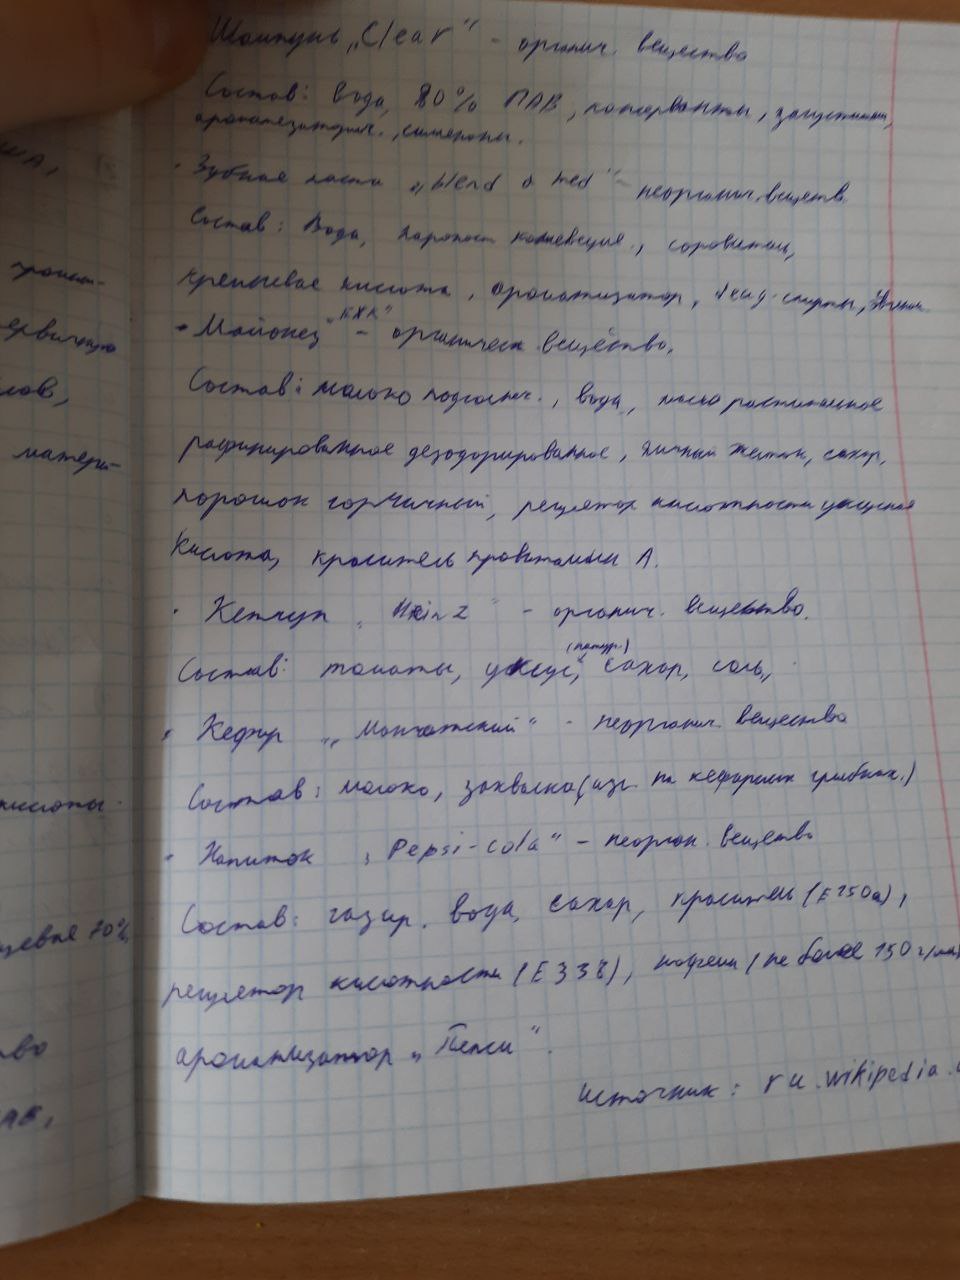 Шампунь „Clear" - органич. вещество
Состав: вода, 80% ПАВ, консерванты, загустители,
ароматизаторы.,
ша,
· Зубная паста „blend a med" - неорганич. веществ.
Состав: Вода, сорбитол,
кремниевая кислота, ароматизатор,
· Майонез "ЕЖК" - органическ вещество,
Состав: масло подсолнеч., вода, масло растительное
лов,
рафинированное дезодорированное, яичный желток, сахар,
матери-
порошок горчичный, регулятор кислотности уксусная
кислота, краситель провитамин А.
· Кетчуп „Heinz" - органич. вещество.
Состав: томаты, уксус, (натур.) сахар, соль,
· Кефир „ " - неорганич. вещество
Состав: молоко, закваска (изг. на кефирных грибках.)
кислоты.
· Напиток „Pepsi-cola" - неорган. вещество
Состав: газир. вода, сахар, краситель (Е150а),
70%
регулятор кислотности (Е338), кофеин (не более 150
ароматизатор „Пепси".
тво
Источник: ru.wikipedia.